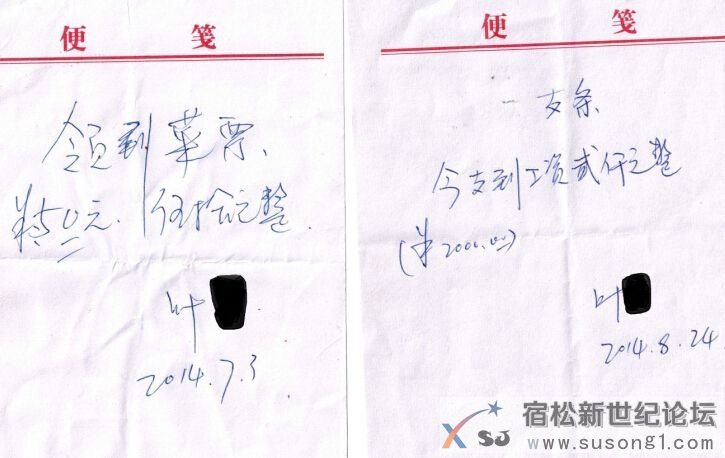 便 笺
领到菜票、
¥50元. 伍拾元整.
叶
2014.7.3
便 笺
支条
今支到工资贰仟元整
(¥2000.00)
叶
2014.8.24
宿松新世纪论坛
XSJ
www.susong1.com